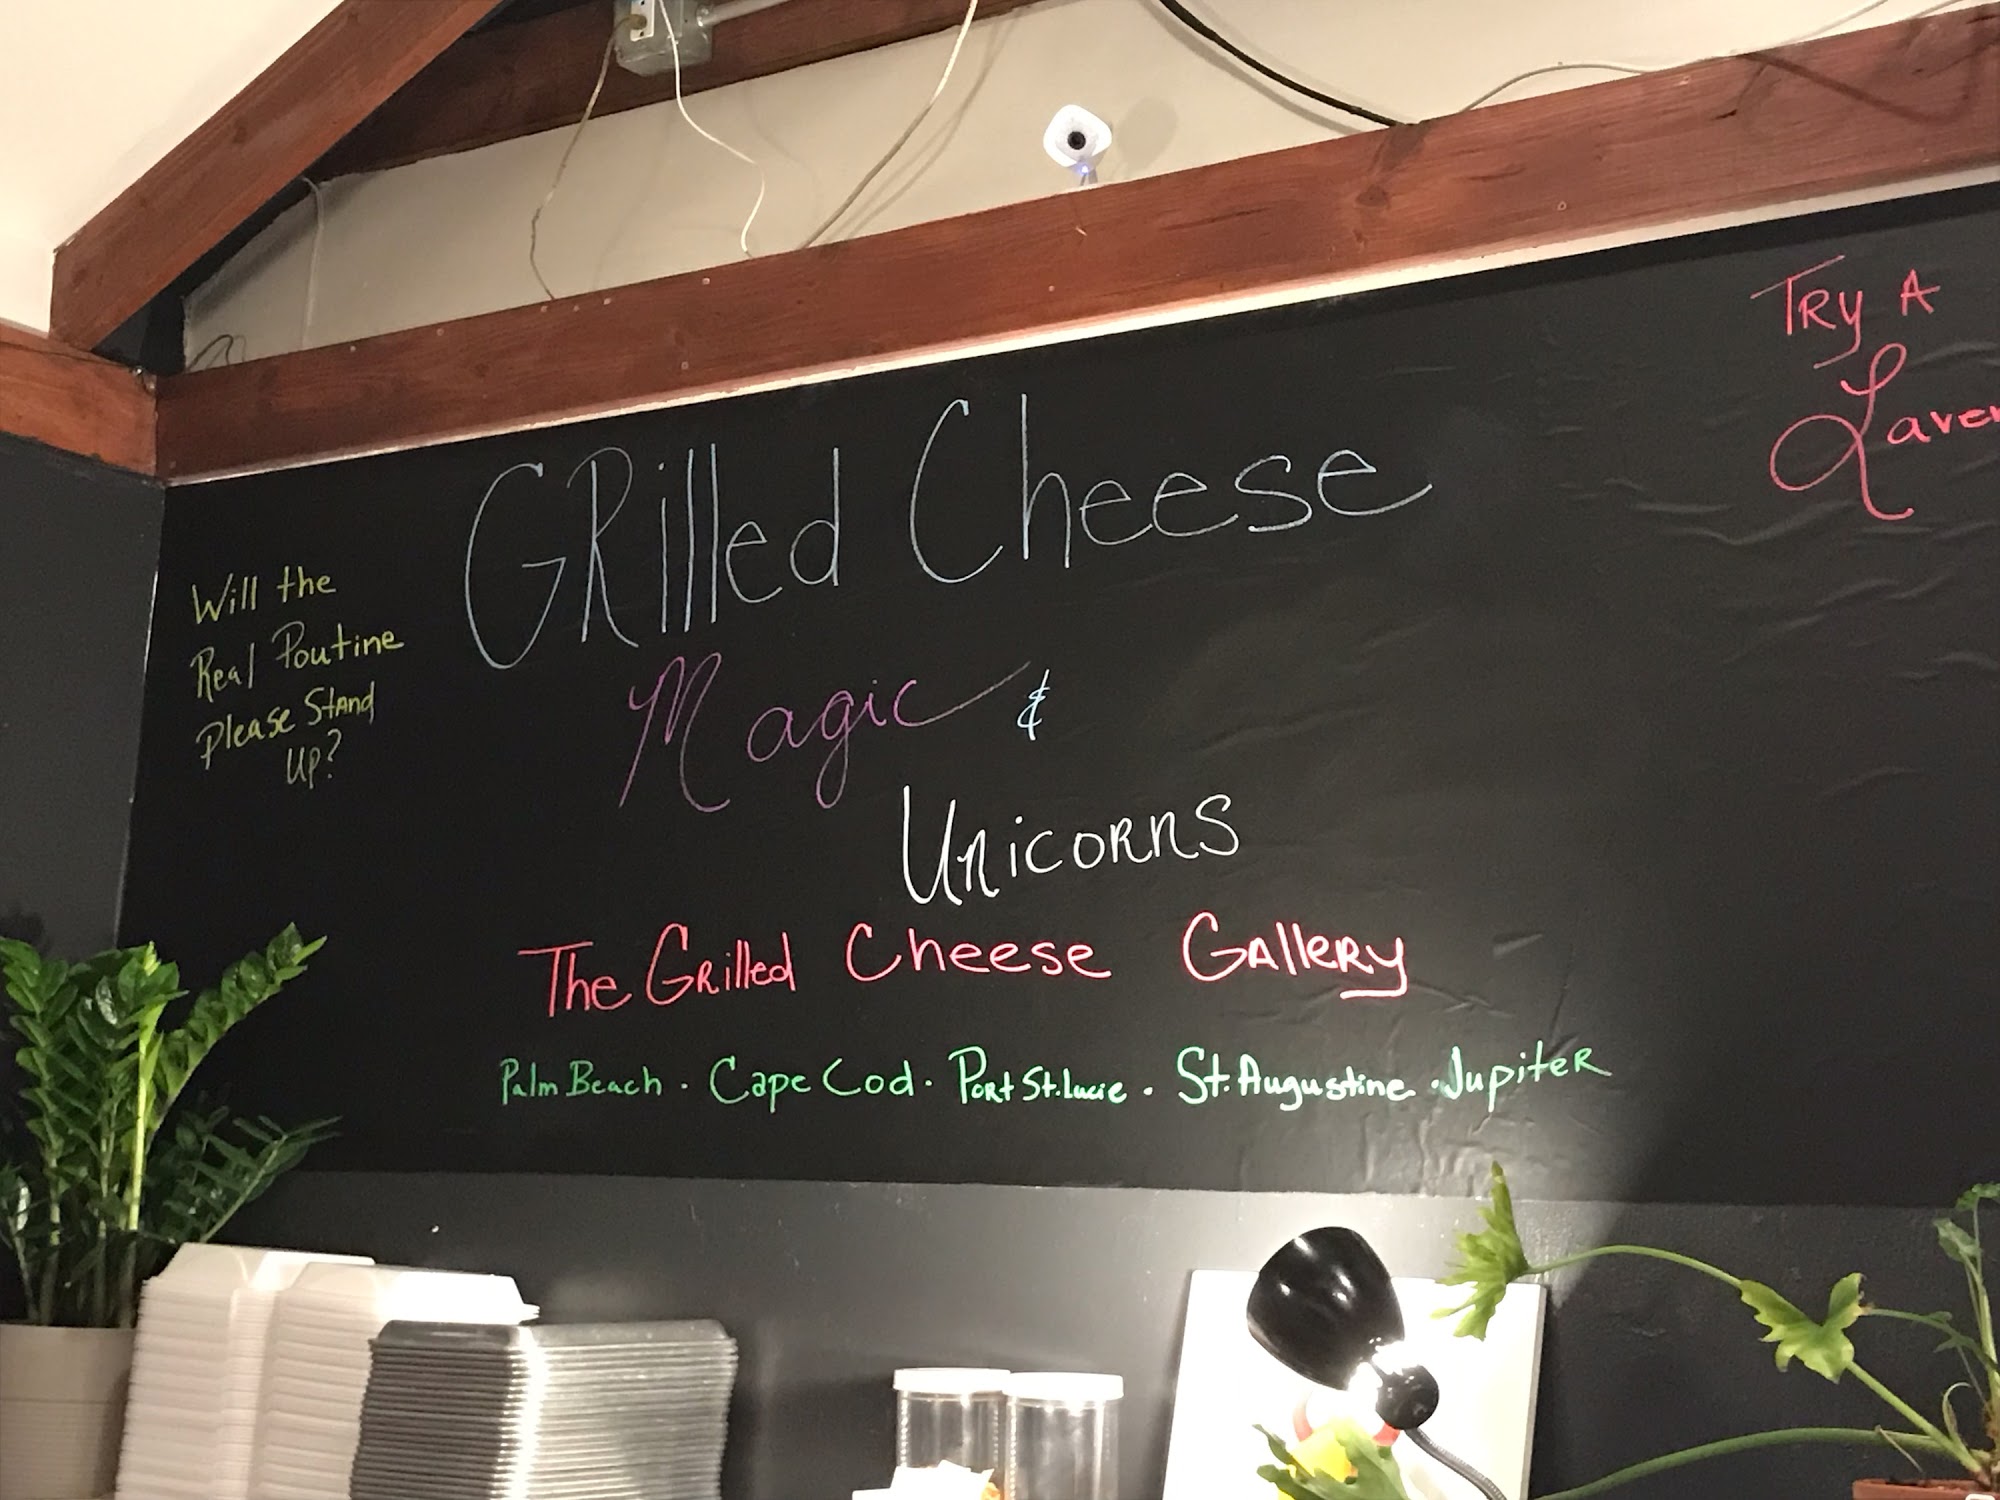 Will the
Real Poutine
Please Stand
Up?
GRilled Cheese
Magic &
Unicorns
The Grilled Cheese Gallery
Palm Beach · Cape Cod · Port St. Lucie · St. Augustine · Jupiter
Try A